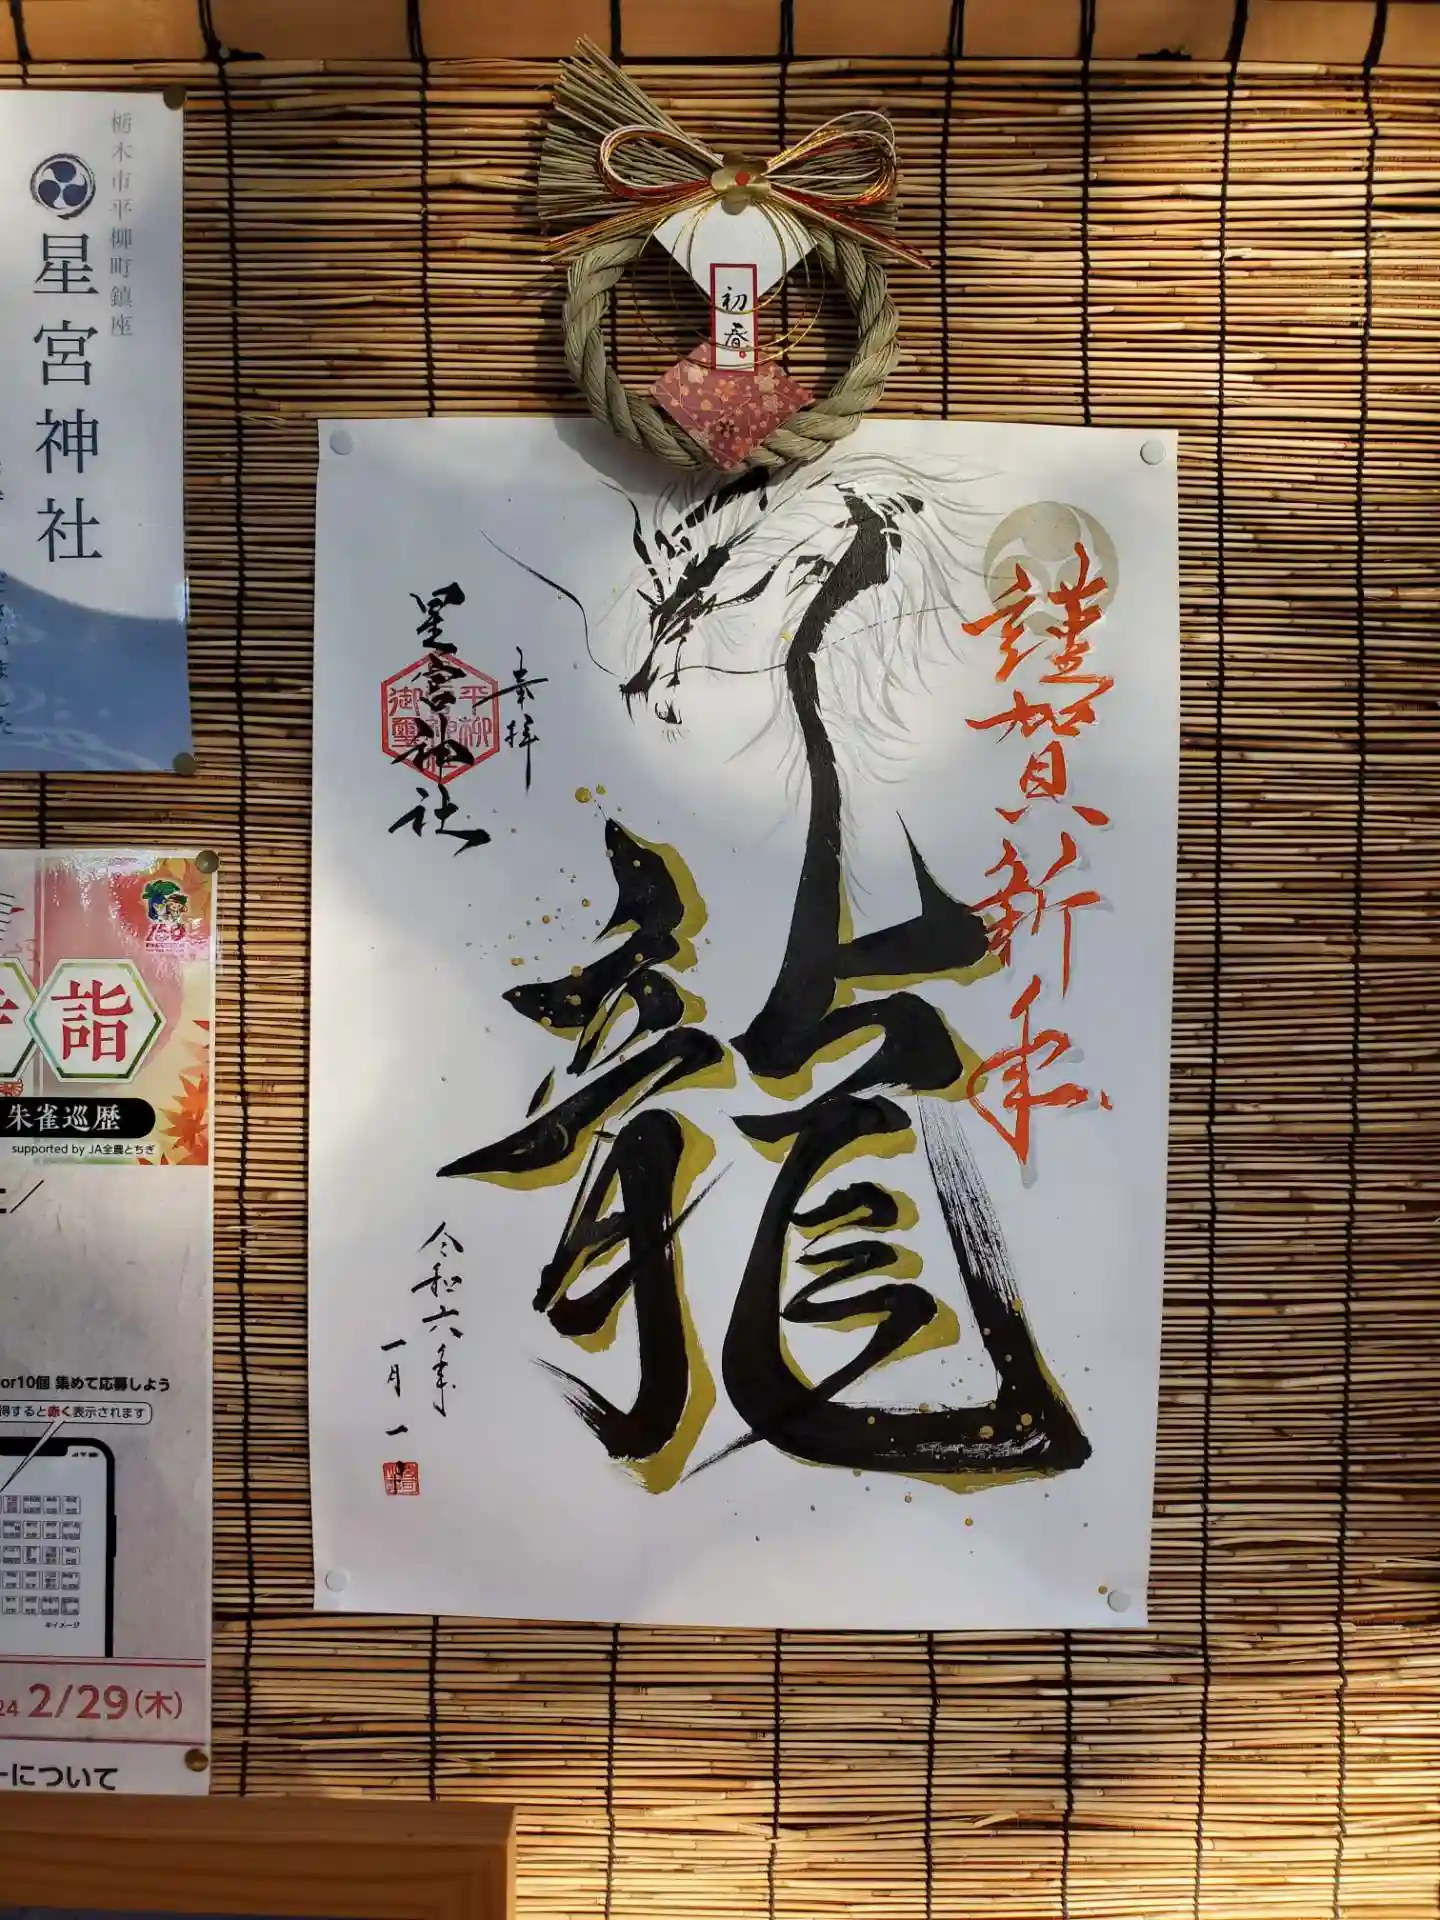 栃木市平柳町鎮座
星宮神社
初春
謹賀新年
龍
奉拝
星宮神社
平柳
御璽
令和六年
一月一
詣
朱雀巡歴
supported by JA全農とちぎ
or10個 集めて応募しよう
得すると赤く表示されます
※イメージ
24 2/29(木)
ーについて